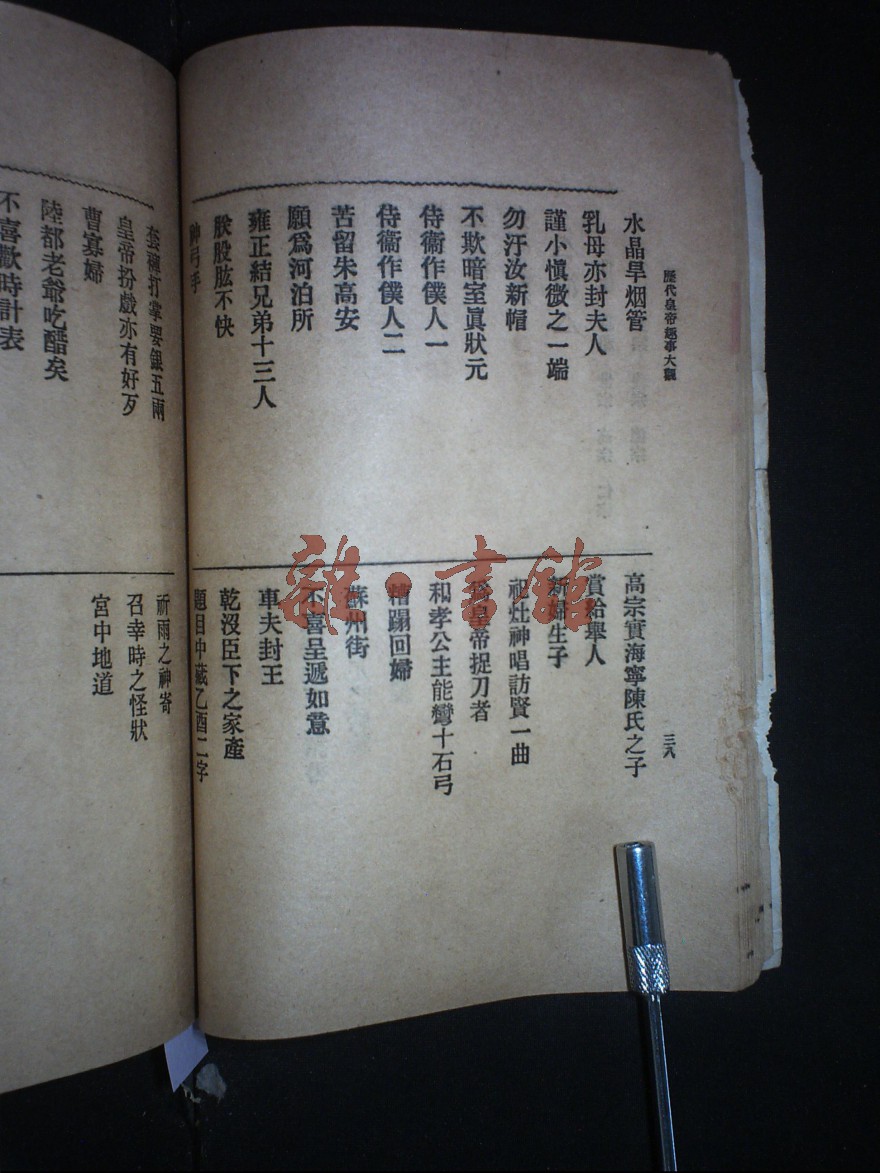 歷代皇帝趣事大觀
三八
水晶旱烟管
乳母亦封夫人
謹小愼微之一端
勿汙汝新帽
不欺暗室眞狀元
侍衞作僕人一
侍衞作僕人二
苦留朱高安
願爲河泊所
雍正結兄弟十三人
朕股肱不快
神弓手
高宗實海寧陳氏之子
賞給舉人
新婦生子
祀灶神唱訪賢一曲
爲皇帝捉刀者
和孝公主能彎十石弓
糟蹋回婦
蘇州街
不喜呈遞如意
車夫封王
乾沒臣下之家產
題目中藏乙酉二字
套褲打掌要銀五兩
皇帝扮戲亦有好歹
曹寡婦
陸都老爺吃醋矣
不喜歡時計表
祈雨之神奇
召幸時之怪狀
宮中地道
雜·書館